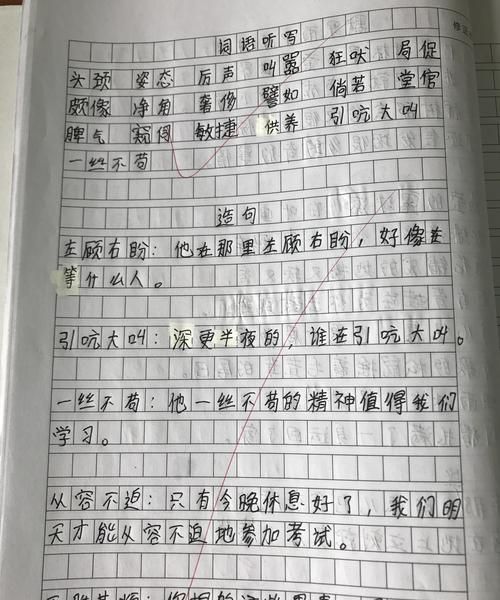 词语听写
头颈 姿态 厉声 叫嚣 狂吠 局促
颇像 净角 奢侈 譬如 倘若 堂倌
脾气 窥伺 敏捷 供养 引吭大叫
一丝不苟
造句
左顾右盼：他在那里左顾右盼，好像在
等什么人。
引吭大叫：深更半夜的，谁在引吭大叫。
一丝不苟：他一丝不苟的精神值得我们
学习。
从容不迫：只有今晚休息好了，我们明
天才能从容不迫地参加考试。